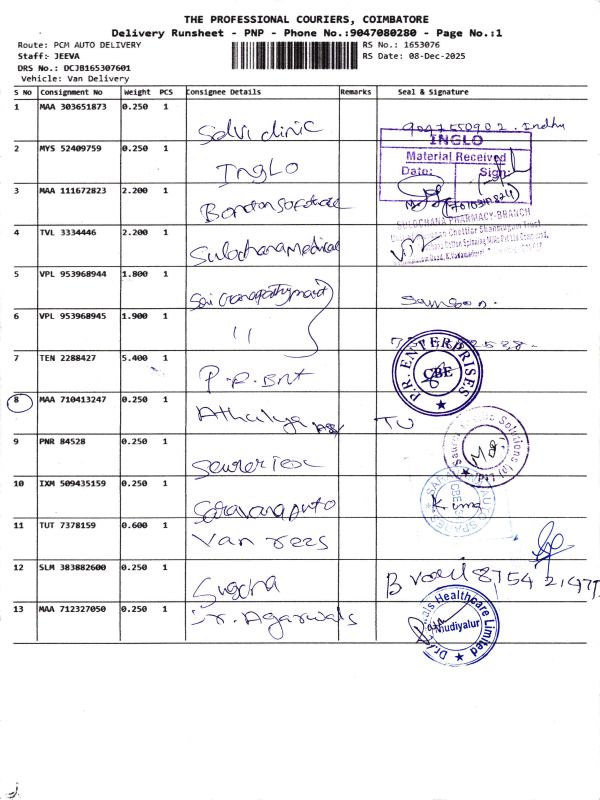 THE PROFESSIONAL COURIERS, COIMBATORE
Delivery Runsheet - PNP - Phone No.:9047080280 - Page No.:1
Route: PCM AUTO DELIVERY
RS No.: 1653076
Staff: JEEVA
RS Date: 08-Dec-2025
DRS No.: DCJB165307601
Vehicle: Van Delivery
S No Consignment No Weight PCS Consignee Details Remarks Seal & Signature
1 MAA 303651873 0.250 1 Selvi clinic Indhu
2 MYS 52409759 0.250 1 INGLO
INGLO
Material Received
Date: Sign:
3 MAA 111672823 2.200 1
4 TVL 3334446 2.200 1 Sulochana Medical
SULOCHANA PHARMACY-BRANCH
5 VPL 953968944 1.800 1 Sai Samson.
6 VPL 953968945 1.900 1 11
7 TEN 2288427 5.400 1 P.R. Ent
P.R. ENTERPRISES
CBE
8 MAA 710413247 0.250 1 Athulya TU
9 PNR 84528 0.250 1
Solutions
10 IXM 509435159 0.250 1 Saravana Auto
CBE
11 TUT 7378159 0.600 1 Van rees
12 SLM 383882600 0.250 1 Suguna
13 MAA 712327050 0.250 1 Dr. Agarwals
Healthcare Limited
Mudiyalur